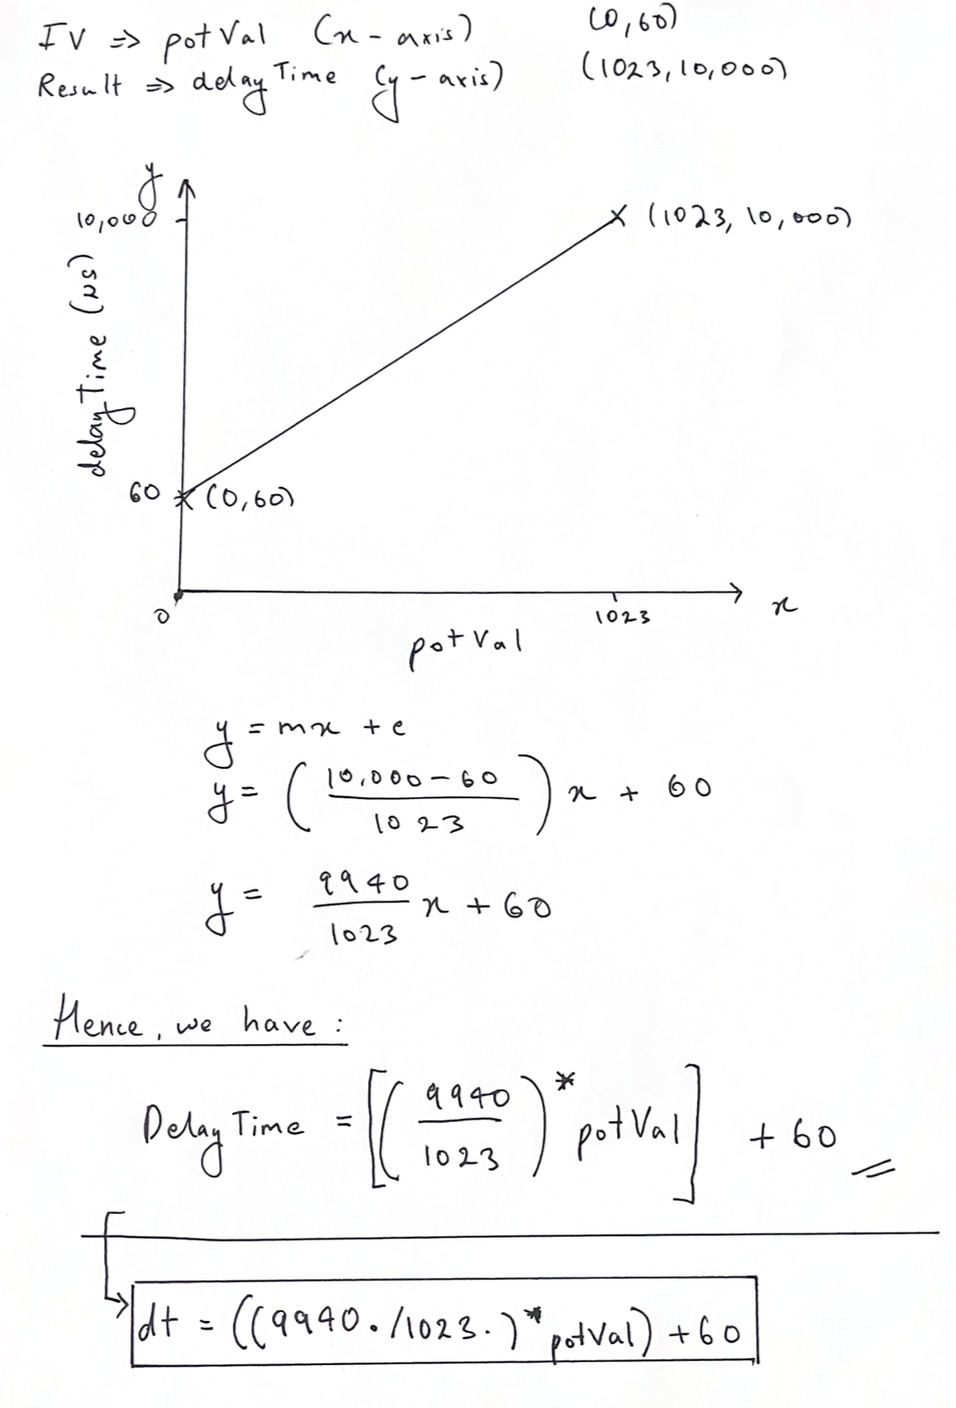 IV ⇒ potVal (x-axis) (0,60)
Result ⇒ delayTime (y-axis) (1023,10,000)
y
10,000
(1023, 10,000)
delayTime (us)
60
(0,60)
0
1023
x
potVal
y = mx + c
y = ( (10,000-60) / 1023 ) x + 60
y = 9940/1023 x + 60
Hence, we have :
DelayTime = [( 9940/1023 ) * potVal] + 60
dt = ((9940./1023.)*potVal) + 60